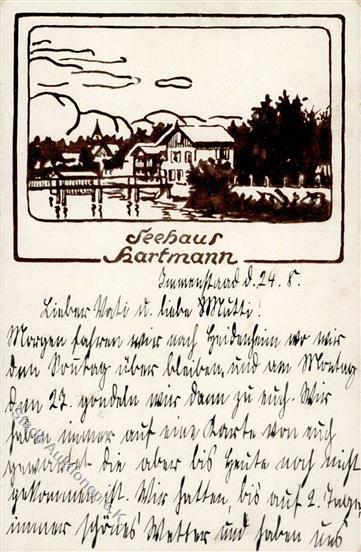 Seehaus
Hartmann
Immenstaad d. 24. 8.
Lieber Vati u. liebe Mutti!
Morgen fahren wir nach Heidenheim wo wir
den Sontag über bleiben und am Montag
den 27. gondeln wir dann zu euch. Wir
haben immer auf eine Karte von euch
gewartet die aber bis heute noch nicht
gekommen ist. Wir hatten, bis auf 2. Tage,
immer schönes Wetter und haben uns